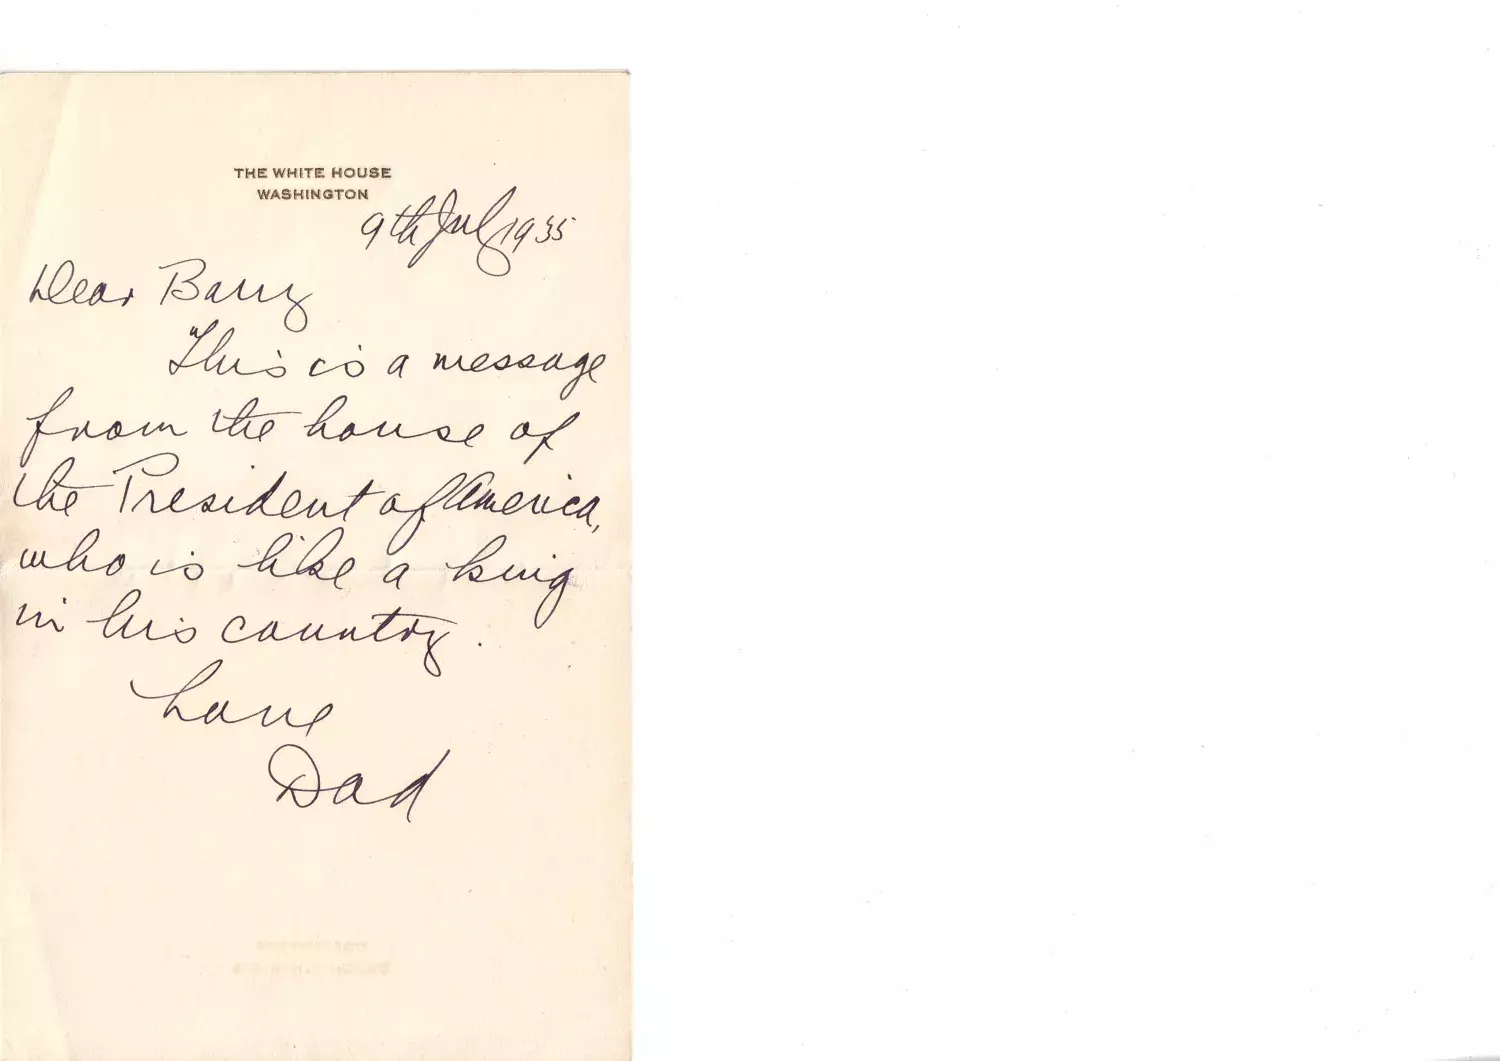 THE WHITE HOUSE
WASHINGTON
9th July 1935
Dear Barry
This is a message
from the house of
the President of America,
who is like a king
in his country.
Love
Dad